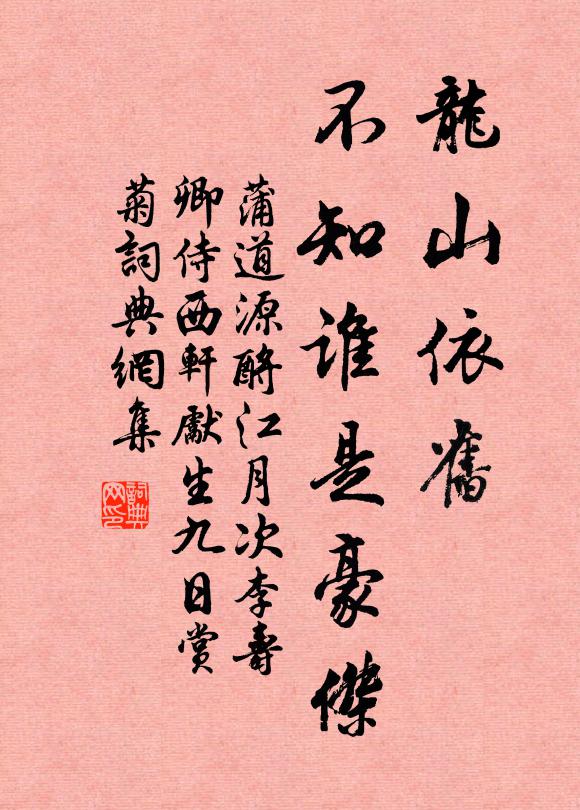 龍山依舊
不知誰是豪傑
蒲道源酹江月次李壽
卿侍西軒獻生九日賞
菊詞典網集
詞典
网印